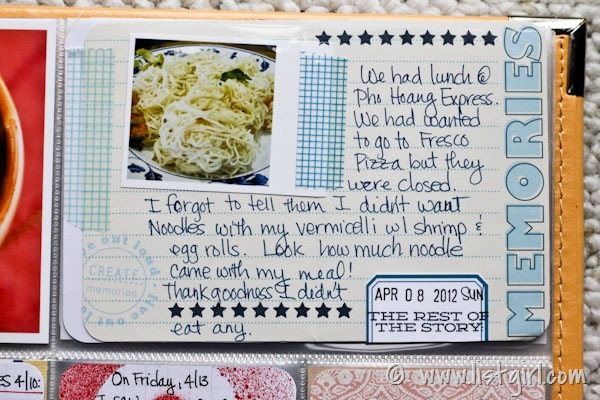 We had lunch @
Pho Hoang Express.
We had wanted
to go to Fresco
Pizza but they
were closed.
I forgot to tell them I didn't want
Noodles with my vermicelli w/ shrimp &
egg rolls. Look how much noodle
came with my meal!
Thank goodness I didn't
eat any.
MEMORIES
live out loud
CREATE
memories
APR 08 2012 SUN
THE REST OF
THE STORY
4/10:
On Friday, 4/13
I saw
© www.listgirl.com